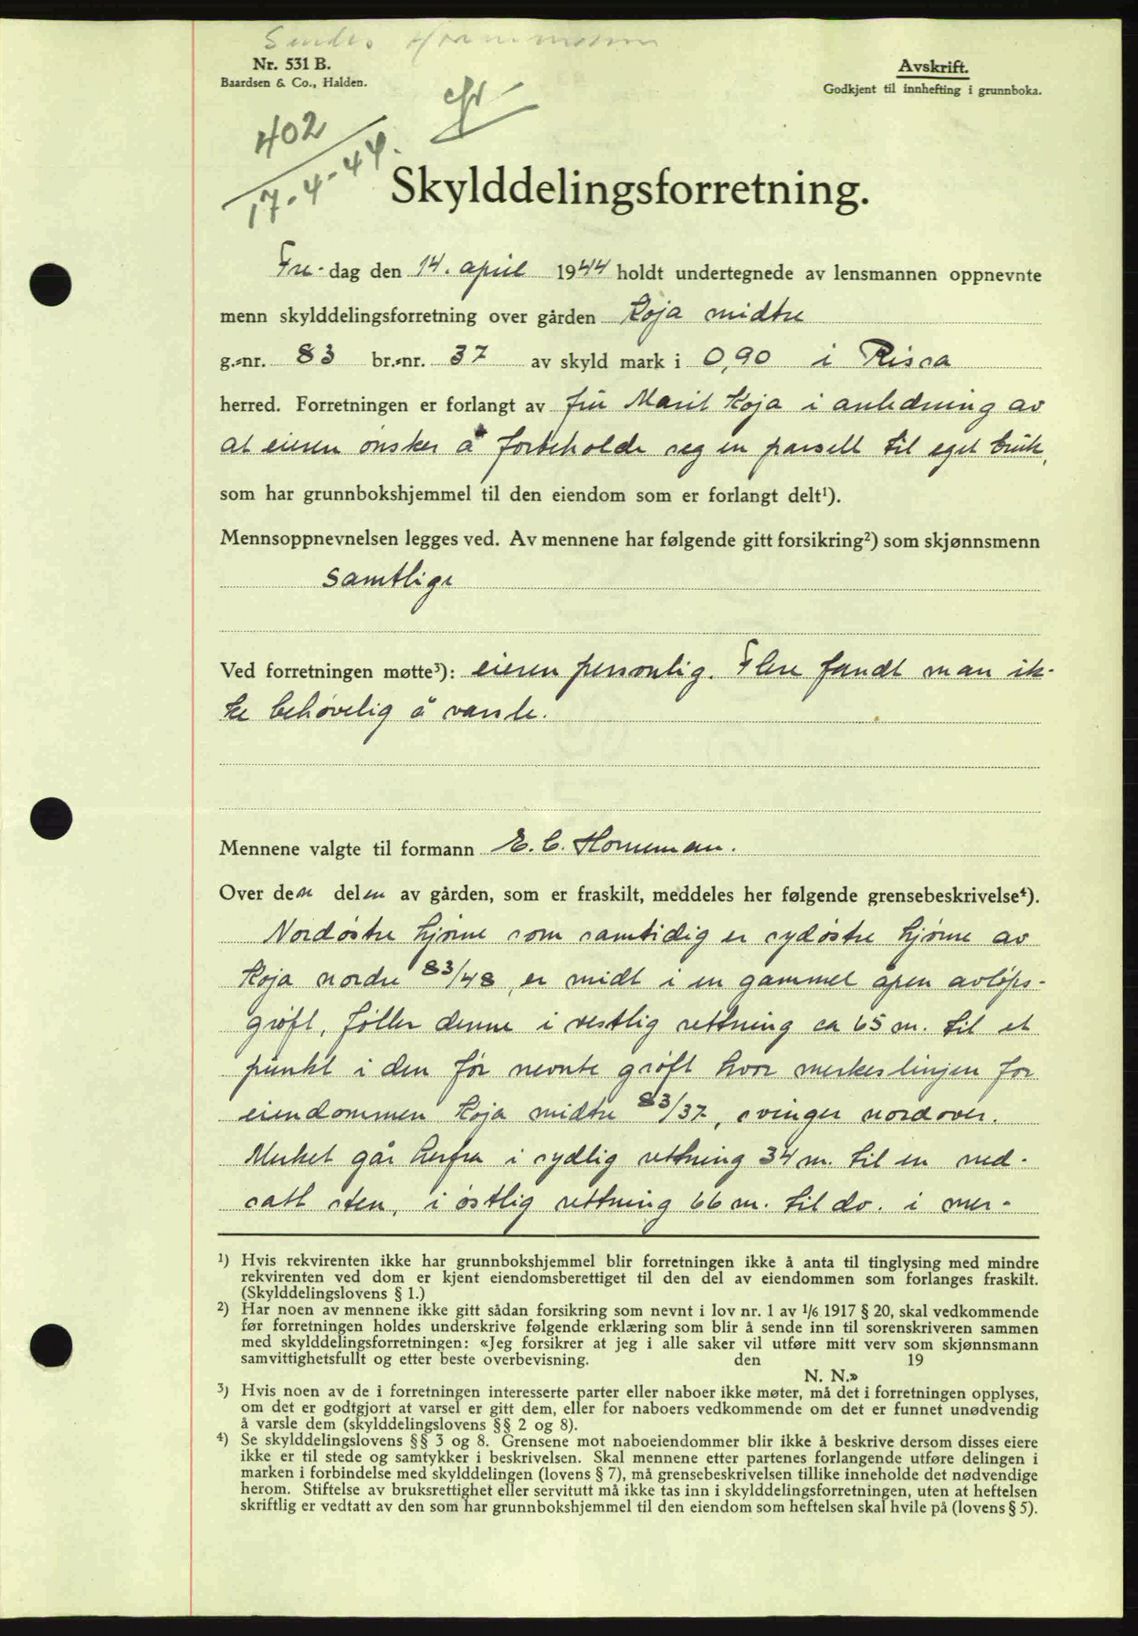 Nr. 531 B.
Baardsen & Co., Halden.
Avskrift.
Godkjent til innhefting i grunnboka.
402
17-4-44.
Skylddelingsforretning.
Fre-dag den 14. april 1944 holdt undertegnede av lensmannen oppnevnte
menn skylddelingsforretning over gården Koja midtre
g.-nr. 83 br.-nr. 37 av skyld mark i 0,90 i Rissa
herred. Forretningen er forlangt av fru Marit Koja i anledning av
at eieren ønsker å forbeholde seg en parsell til eget bruk,
som har grunnbokshjemmel til den eiendom som er forlangt delt¹).
Mennsoppnevnelsen legges ved. Av mennene har følgende gitt forsikring²) som skjønnsmenn
samtlige
Ved forretningen møtte³): eieren personlig. Flere fandt man ik-
ke behøvelig å varsle.
Mennene valgte til formann E. C. Horneman.
Over den delen av gården, som er fraskilt, meddeles her følgende grensebeskrivelse⁴).
Nordøstre hjørne som samtidig er sydøstre hjørne av
Koja nordre 83/48, er midt i en gammel åpen avløps-
grøft, føller denne i vestlig rettning ca 65 m. til et
punkt i den før nevnte grøft hvor merkeslinjen for
eiendommen Koja midtre 83/37, svinger nordover.
Merket går herfra i sydlig rettning 34 m. til en ned-
satt sten, i østlig rettning 66 m. til do. i mer-
¹) Hvis rekvirenten ikke har grunnbokshjemmel blir forretningen ikke å anta til tinglysing med mindre
rekvirenten ved dom er kjent eiendomsberettiget til den del av eiendommen som forlanges fraskilt.
(Skylddelingslovens § 1.)
²) Har noen av mennene ikke gitt sådan forsikring som nevnt i lov nr. 1 av 1/6 1917 § 20, skal vedkommende
før forretningen holdes underskrive følgende erklæring som blir å sende inn til sorenskriveren sammen
med skylddelingsforretningen: «Jeg forsikrer at jeg i alle saker vil utføre mitt verv som skjønnsmann
samvittighetsfullt og etter beste overbevisning. den 19
N. N.»
³) Hvis noen av de i forretningen interesserte parter eller naboer ikke møter, må det i forretningen opplyses,
om det er godtgjort at varsel er gitt dem, eller for naboers vedkommende om det er funnet unødvendig
å varsle dem (skylddelingslovens §§ 2 og 8).
⁴) Se skylddelingslovens §§ 3 og 8. Grensene mot naboeiendommer blir ikke å beskrive dersom disses eiere
ikke er til stede og samtykker i beskrivelsen. Skal mennene etter partenes forlangende utføre delingen i
marken i forbindelse med skylddelingen (lovens § 7), må grensebeskrivelsen tillike inneholde det nødvendige
herom. Stiftelse av bruksrettighet eller servitutt må ikke tas inn i skylddelingsforretningen, uten at heftelsen
skriftlig er vedtatt av den som har grunnbokshjemmel til den eiendom som heftelsen skal hvile på (lovens § 5).